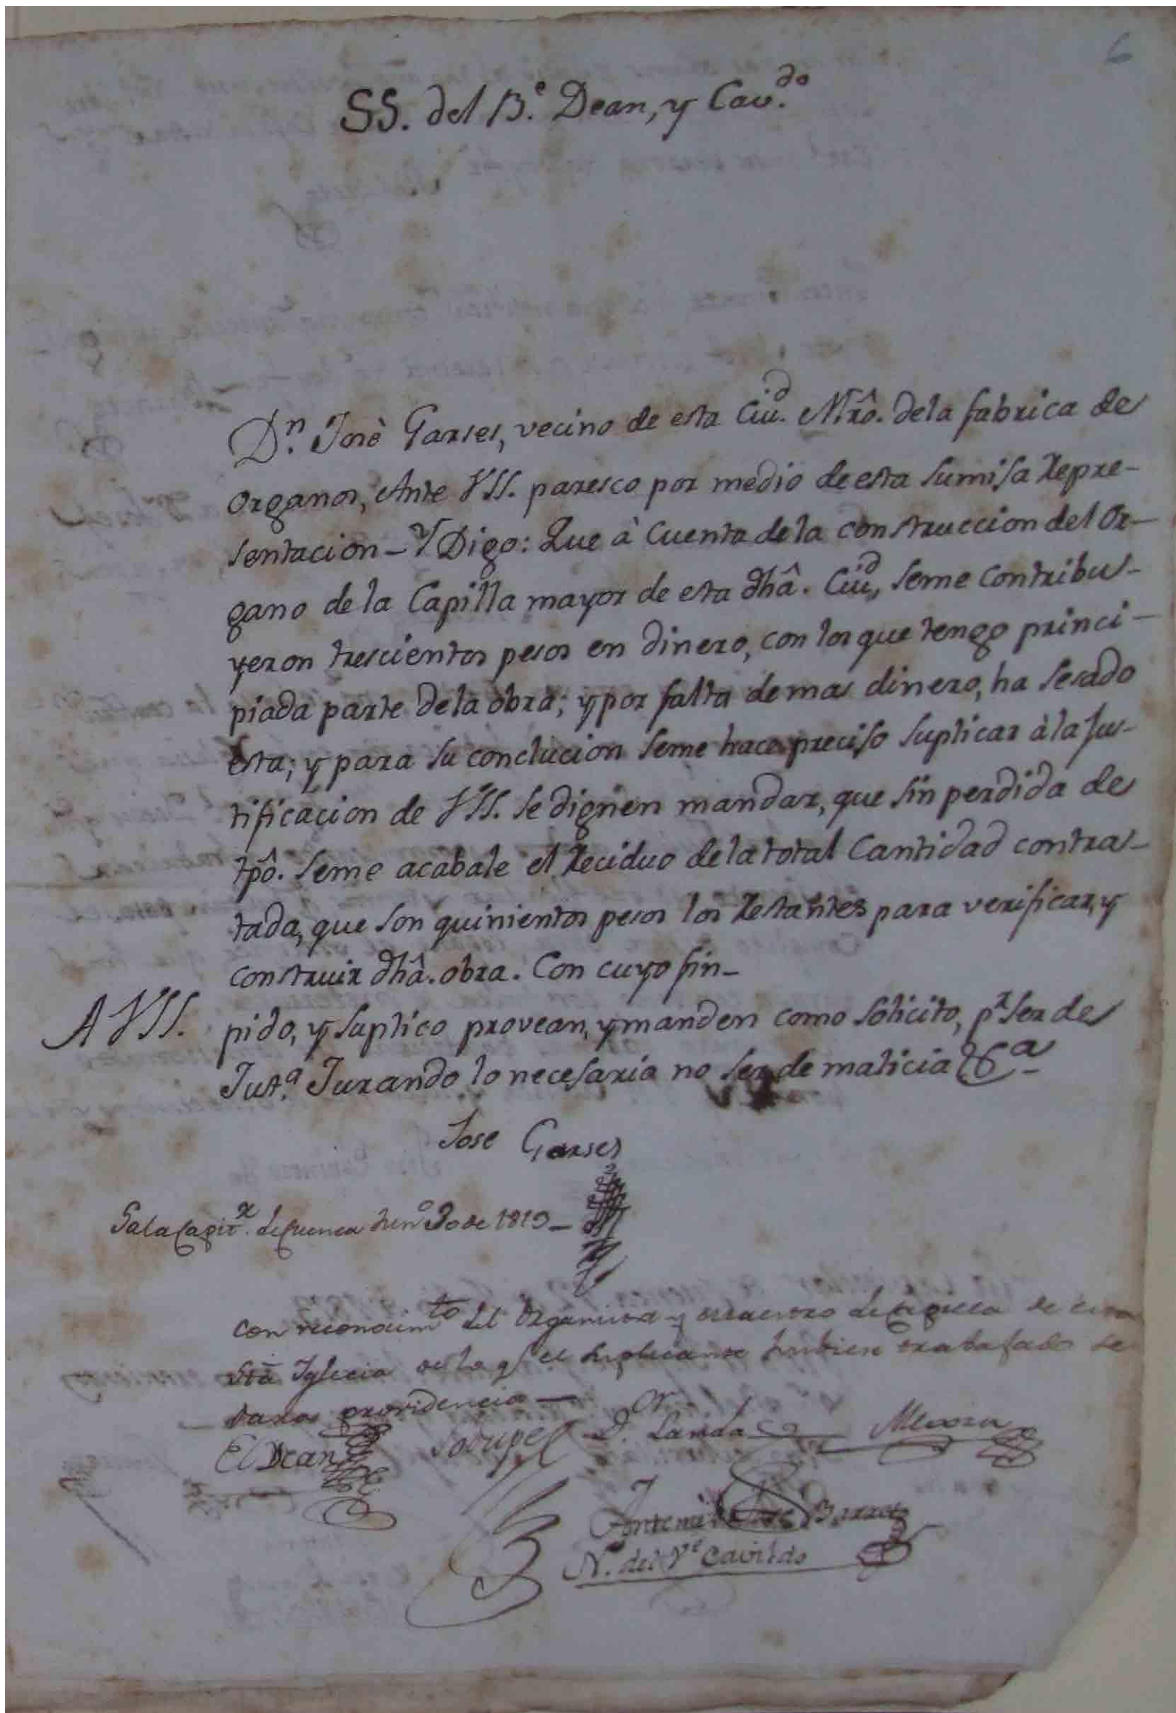 6
SS. del B.e Dean, y Cav.do
D.n José Garses, vecino de esta Ciu.d Mrô. dela fabrica de
Organos, Ante VSS. paresco por medio de esta sumisa Repre-
sentacion - Y Digo: Que à Cuenta de la construccion del Or-
gano de la Capilla mayor de esta dhâ. Ciud, seme contribu-
yeron trescientos pesos en dinero, con los que tengo princi-
piada parte dela obra; y por falta de mas dinero, ha sesado
esta; y para su conclucion seme hace preciso suplicar à la Jus-
tificacion de VSS. se dignen mandar, que sin perdida de
tpô. seme acabale el Reciduo dela total Cantidad contra-
tada, que son quinientos pesos los Restantes para verificar, y
construir dhâ. obra. Con cuyo fin-
A VSS. pido, y suplico provean, y manden como solicito, p.r ser de
Just.a Jurando lo necesario no ser de malicia &a-
Jose Garses
Sala Capit.r de Cuenca Jun.o 30 de 1819-
Con reconocim.to del Organista y maestro de capilla de esta
Sta Iglecia de lo q.e el suplicante hubiese trabajado se
dara providencia-
El Dean D.or Landa
N. del V.e Cavildo